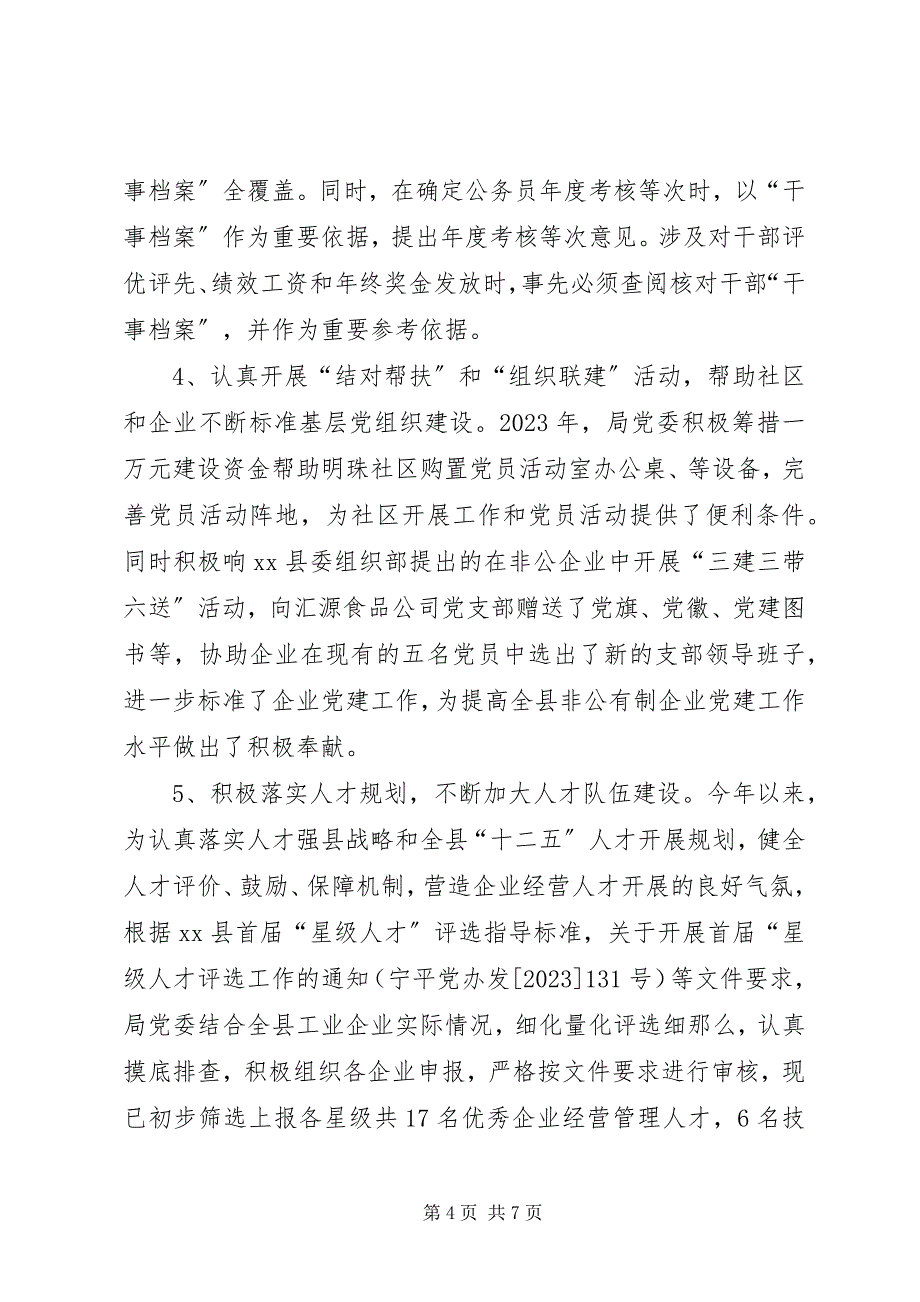 事档案〞全覆盖。同时，在确定公务员年度考核等次时，以“干
事档案〞作为重要依据，提出年度考核等次意见。涉及对干部评
优评先、绩效工资和年终奖金发放时，事先必须查阅核对干部“干
事档案〞，并作为重要参考依据。
4、认真开展“结对帮扶〞和“组织联建〞活动，帮助社区
和企业不断标准基层党组织建设。2023 年，局党委积极筹措一
万元建设资金帮助明珠社区购置党员活动室办公桌、等设备，完
善党员活动阵地，为社区开展工作和党员活动提供了便利条件。
同时积极响 xx 县委组织部提出的在非公企业中开展“三建三带
六送〞活动，向汇源食品公司党支部赠送了党旗、党徽、党建图
书等，协助企业在现有的五名党员中选出了新的支部领导班子，
进一步标准了企业党建工作，为提高全县非公有制企业党建工作
水平做出了积极奉献。
5、积极落实人才规划，不断加大人才队伍建设。今年以来，
为认真落实人才强县战略和全县“十二五〞人才开展规划，健全
人才评价、鼓励、保障机制，营造企业经营人才开展的良好气氛，
根据 xx 县首届“星级人才〞评选指导标准，关于开展首届“星
级人才评选工作的通知（宁平党办发[2023]131 号）等文件要求，
局党委结合全县工业企业实际情况，细化量化评选细那么，认真
摸底排查，积极组织各企业申报，严格按文件要求进行审核，现
已初步筛选上报各星级共 17 名优秀企业经营管理人才，6 名技
第 4 页 共 7 页